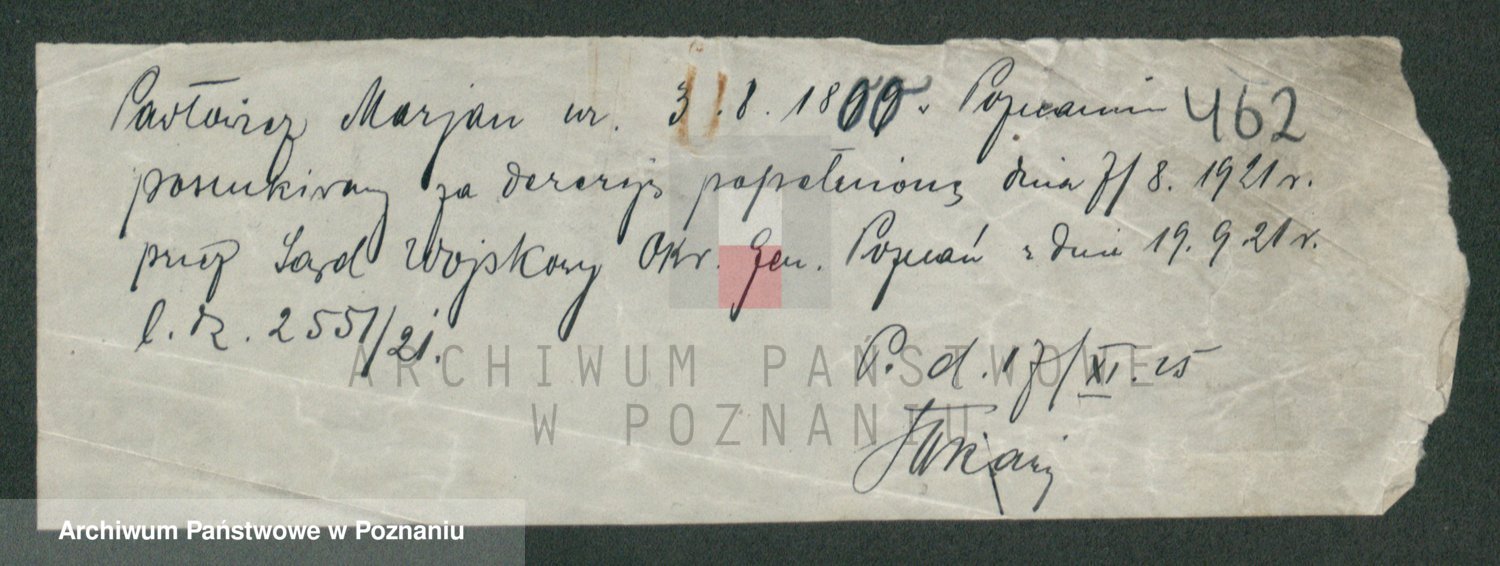 Pawłowicz Marjan ur. 3.8.18 w Poznaniu 462
poszukiwany za dezercję popełnioną dnia 7/8. 1921 r.
przez Sąd Wojskowy Okr. Gen. Poznań z dnia 19.9.21 r.
l. dz. 2551/21.
P. d. 17/XI.25
ARCHIWUM PAŃSTWOWE
W POZNANIU
Archiwum Państwowe w Poznaniu